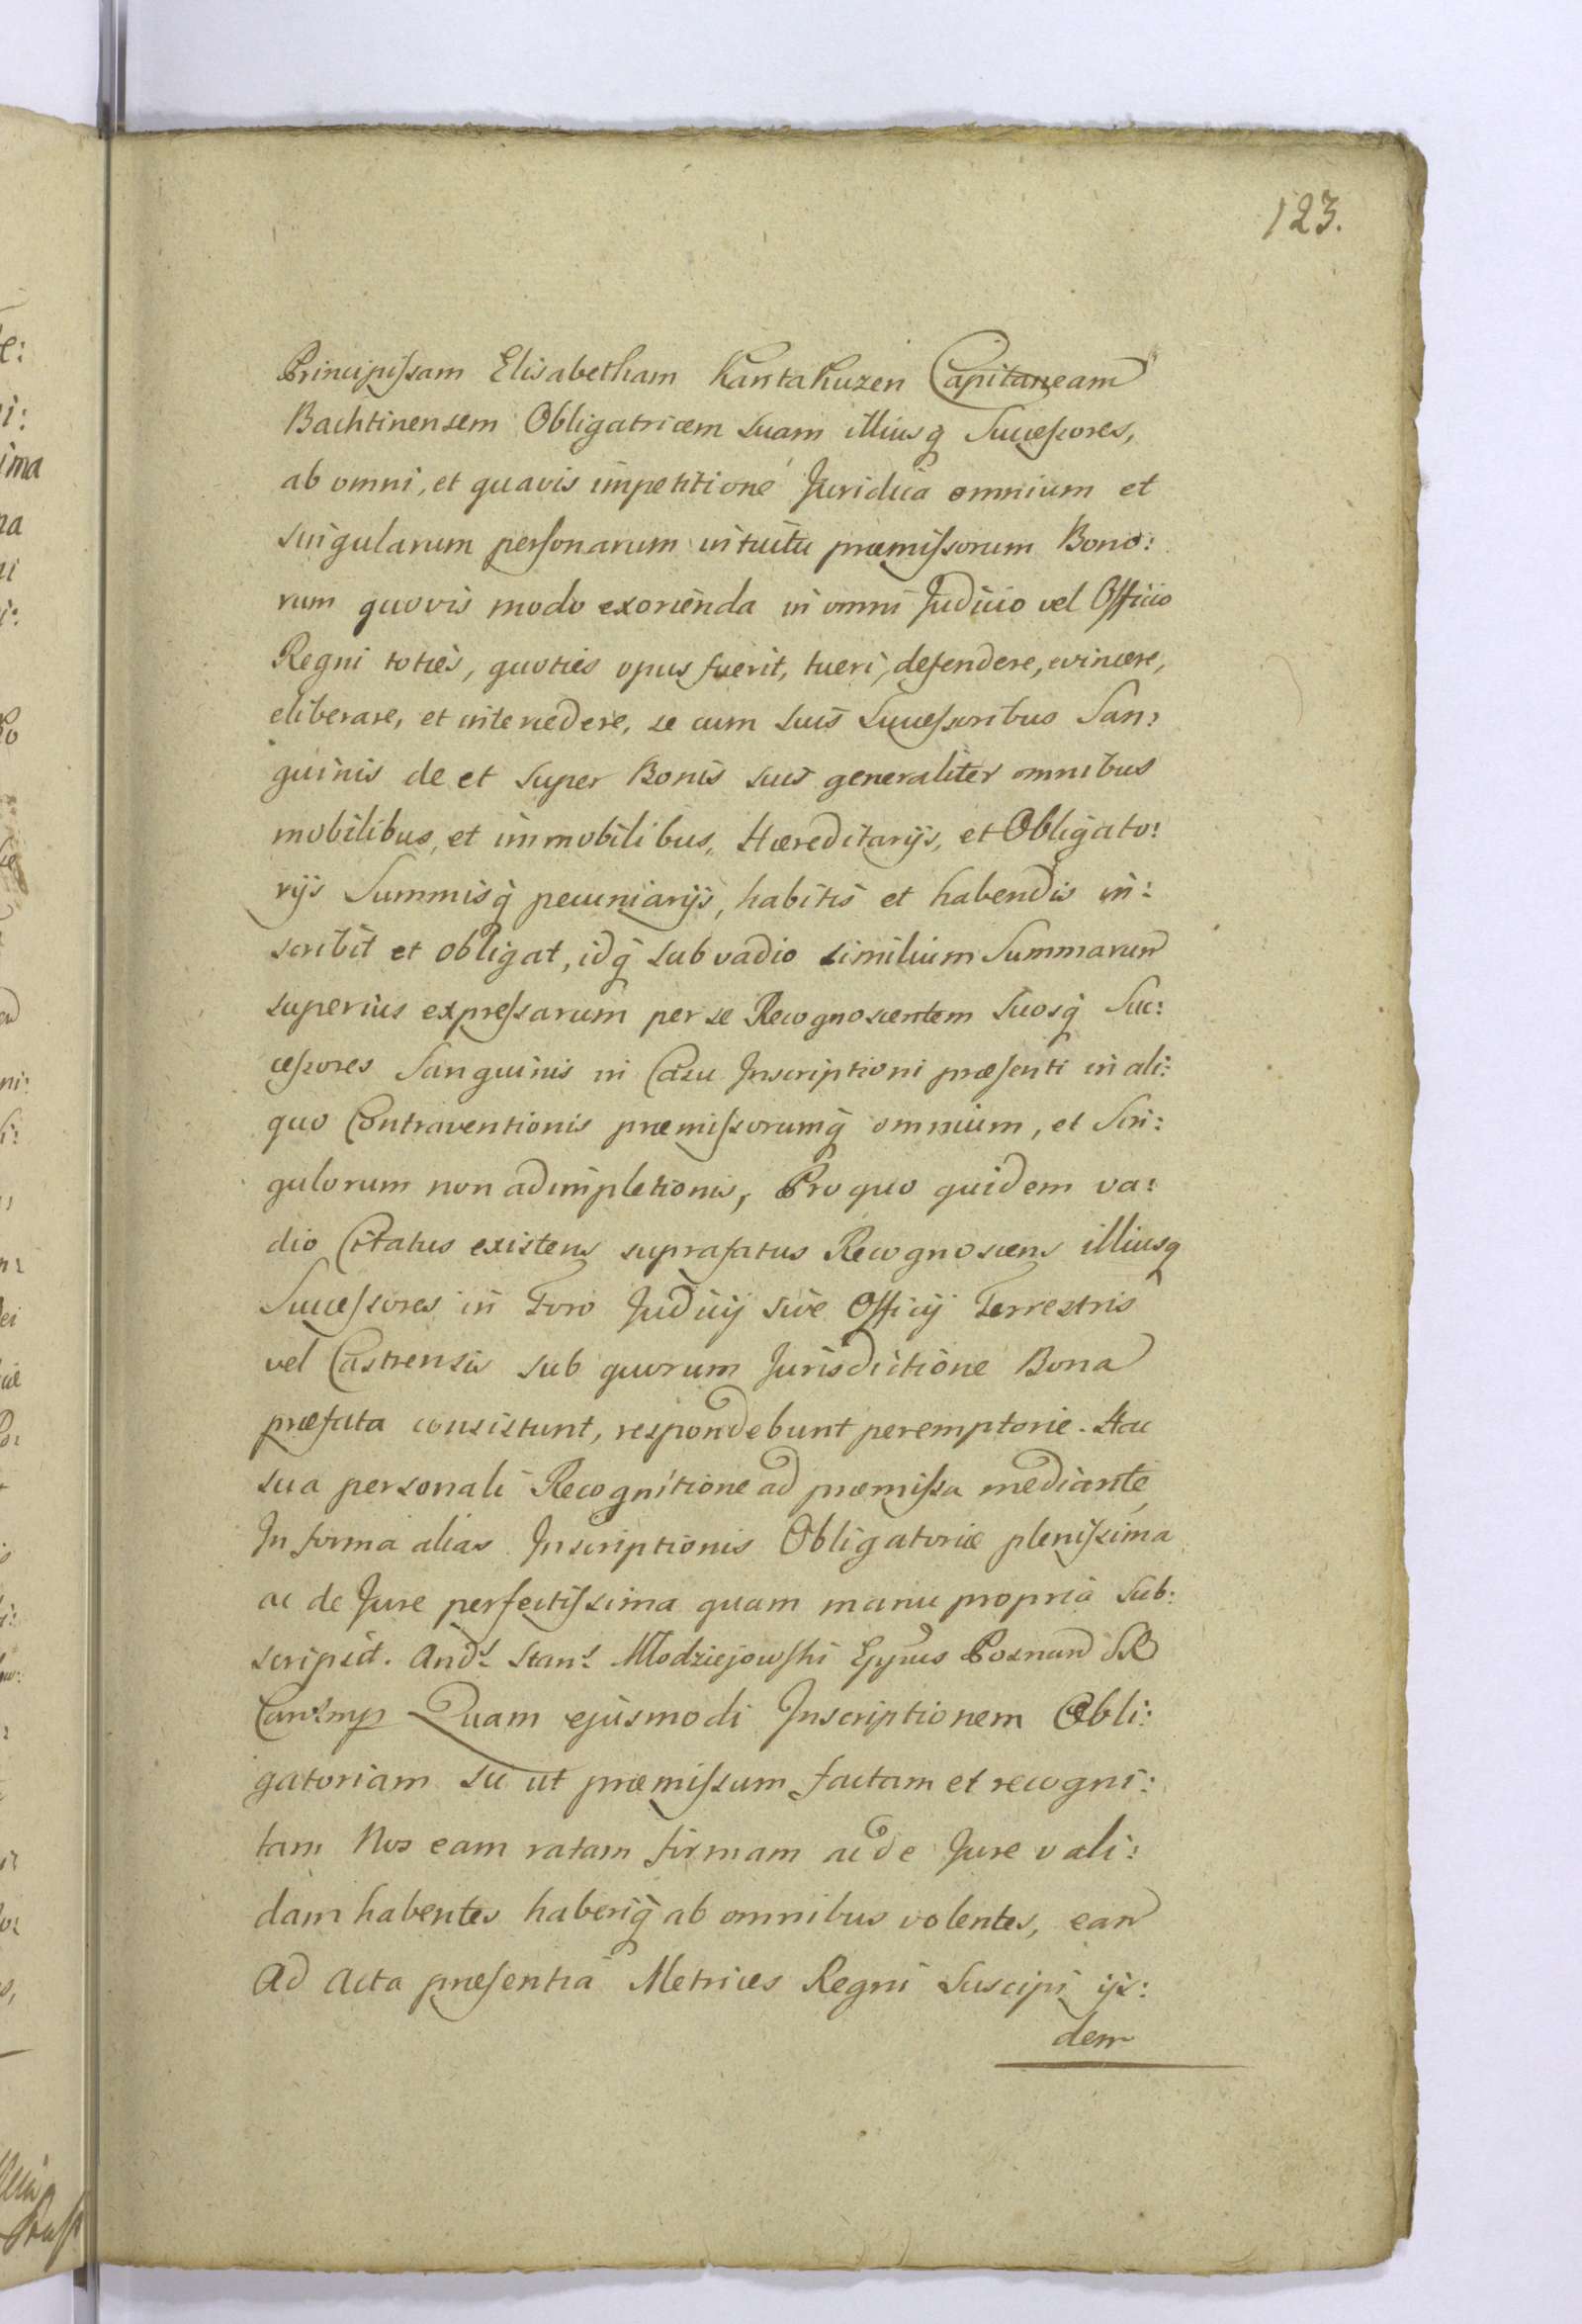 123.
Principissam Elisabetham Kantakuzen Capitaneam
Bachtinensem Obligatricem suam illiusq Successores,
ab omni, et quavis impetitione Juridica omnium et
singularum personarum intuitu præmissorum Bono:
rum quovis modo exorienda in omni Judicio vel Officio
Regni toties, quoties opus fuerit, tueri, defendere, evincere,
eliberare, et intercedere, se cum suis Successoribus San:
guinis de et super Bonis suis generaliter omnibus
mobilibus, et immobilibus, Hæreditarijs, et Obligato:
rijs Summisq pecuniarijs, habitis et habendis in:
scribit et obligat, idq sub vadio similium Summarum
superius expressarum per se Recognoscentem suosq Suc:
cessores Sanguinis in Casu Inscriptioni præsenti in ali:
quo Contraventionis præmissorumq omnium, et Sin:
gulorum non adimpletionis, Pro quo quidem va:
dio Citatus existens suprafatus Recognoscens illiusq
Successores in Foro Judicij sive Officij Terrestris
vel Castrensis sub quorum Jurisdictione Bona
præfata consistunt, respondebunt peremptorie. Hac
sua personali Recognitione ad præmissa mediante
In forma alias Inscriptionis Obligatoriæ plenissima
ac de Jure perfectissima quam manu propria sub:
scripsit. Ands Stans Młodziejowski Eppus Posnan SR
Canc. mp Quam ejusmodi Inscriptionem Obli:
gatoriam sic ut præmissum factam et recogni:
tam Nos eam ratam firmam ac de Jure vali:
dam habentes haberiq ab omnibus volentes, eam
Ad Acta præsentia Metrices Regni Suscipi ijs:
dem